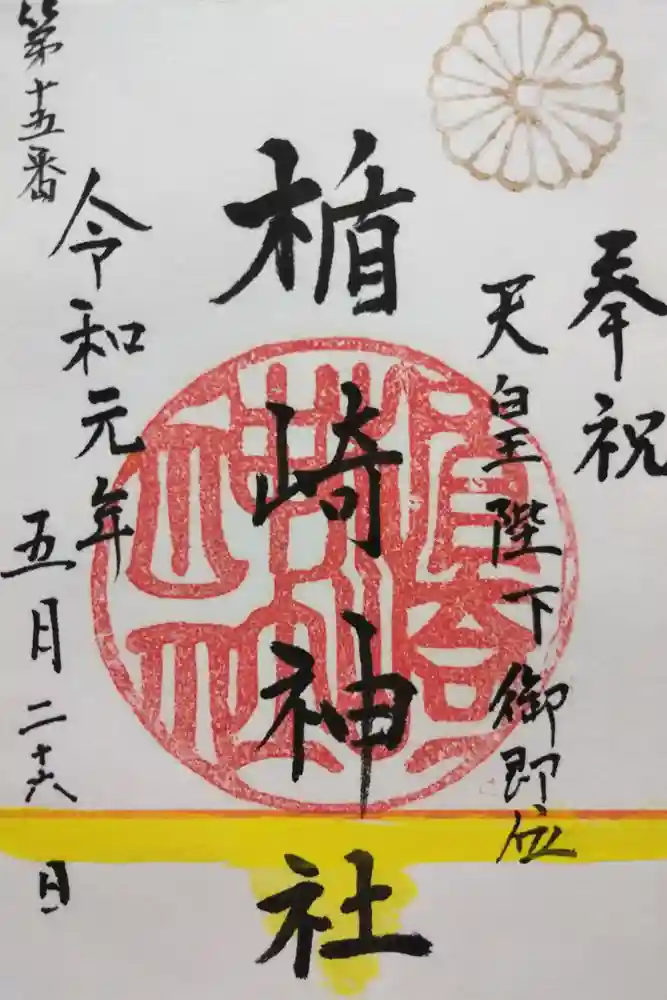 奉祝
天皇陛下御即位
楯崎神社
令和元年
五月二十六日
第十五番